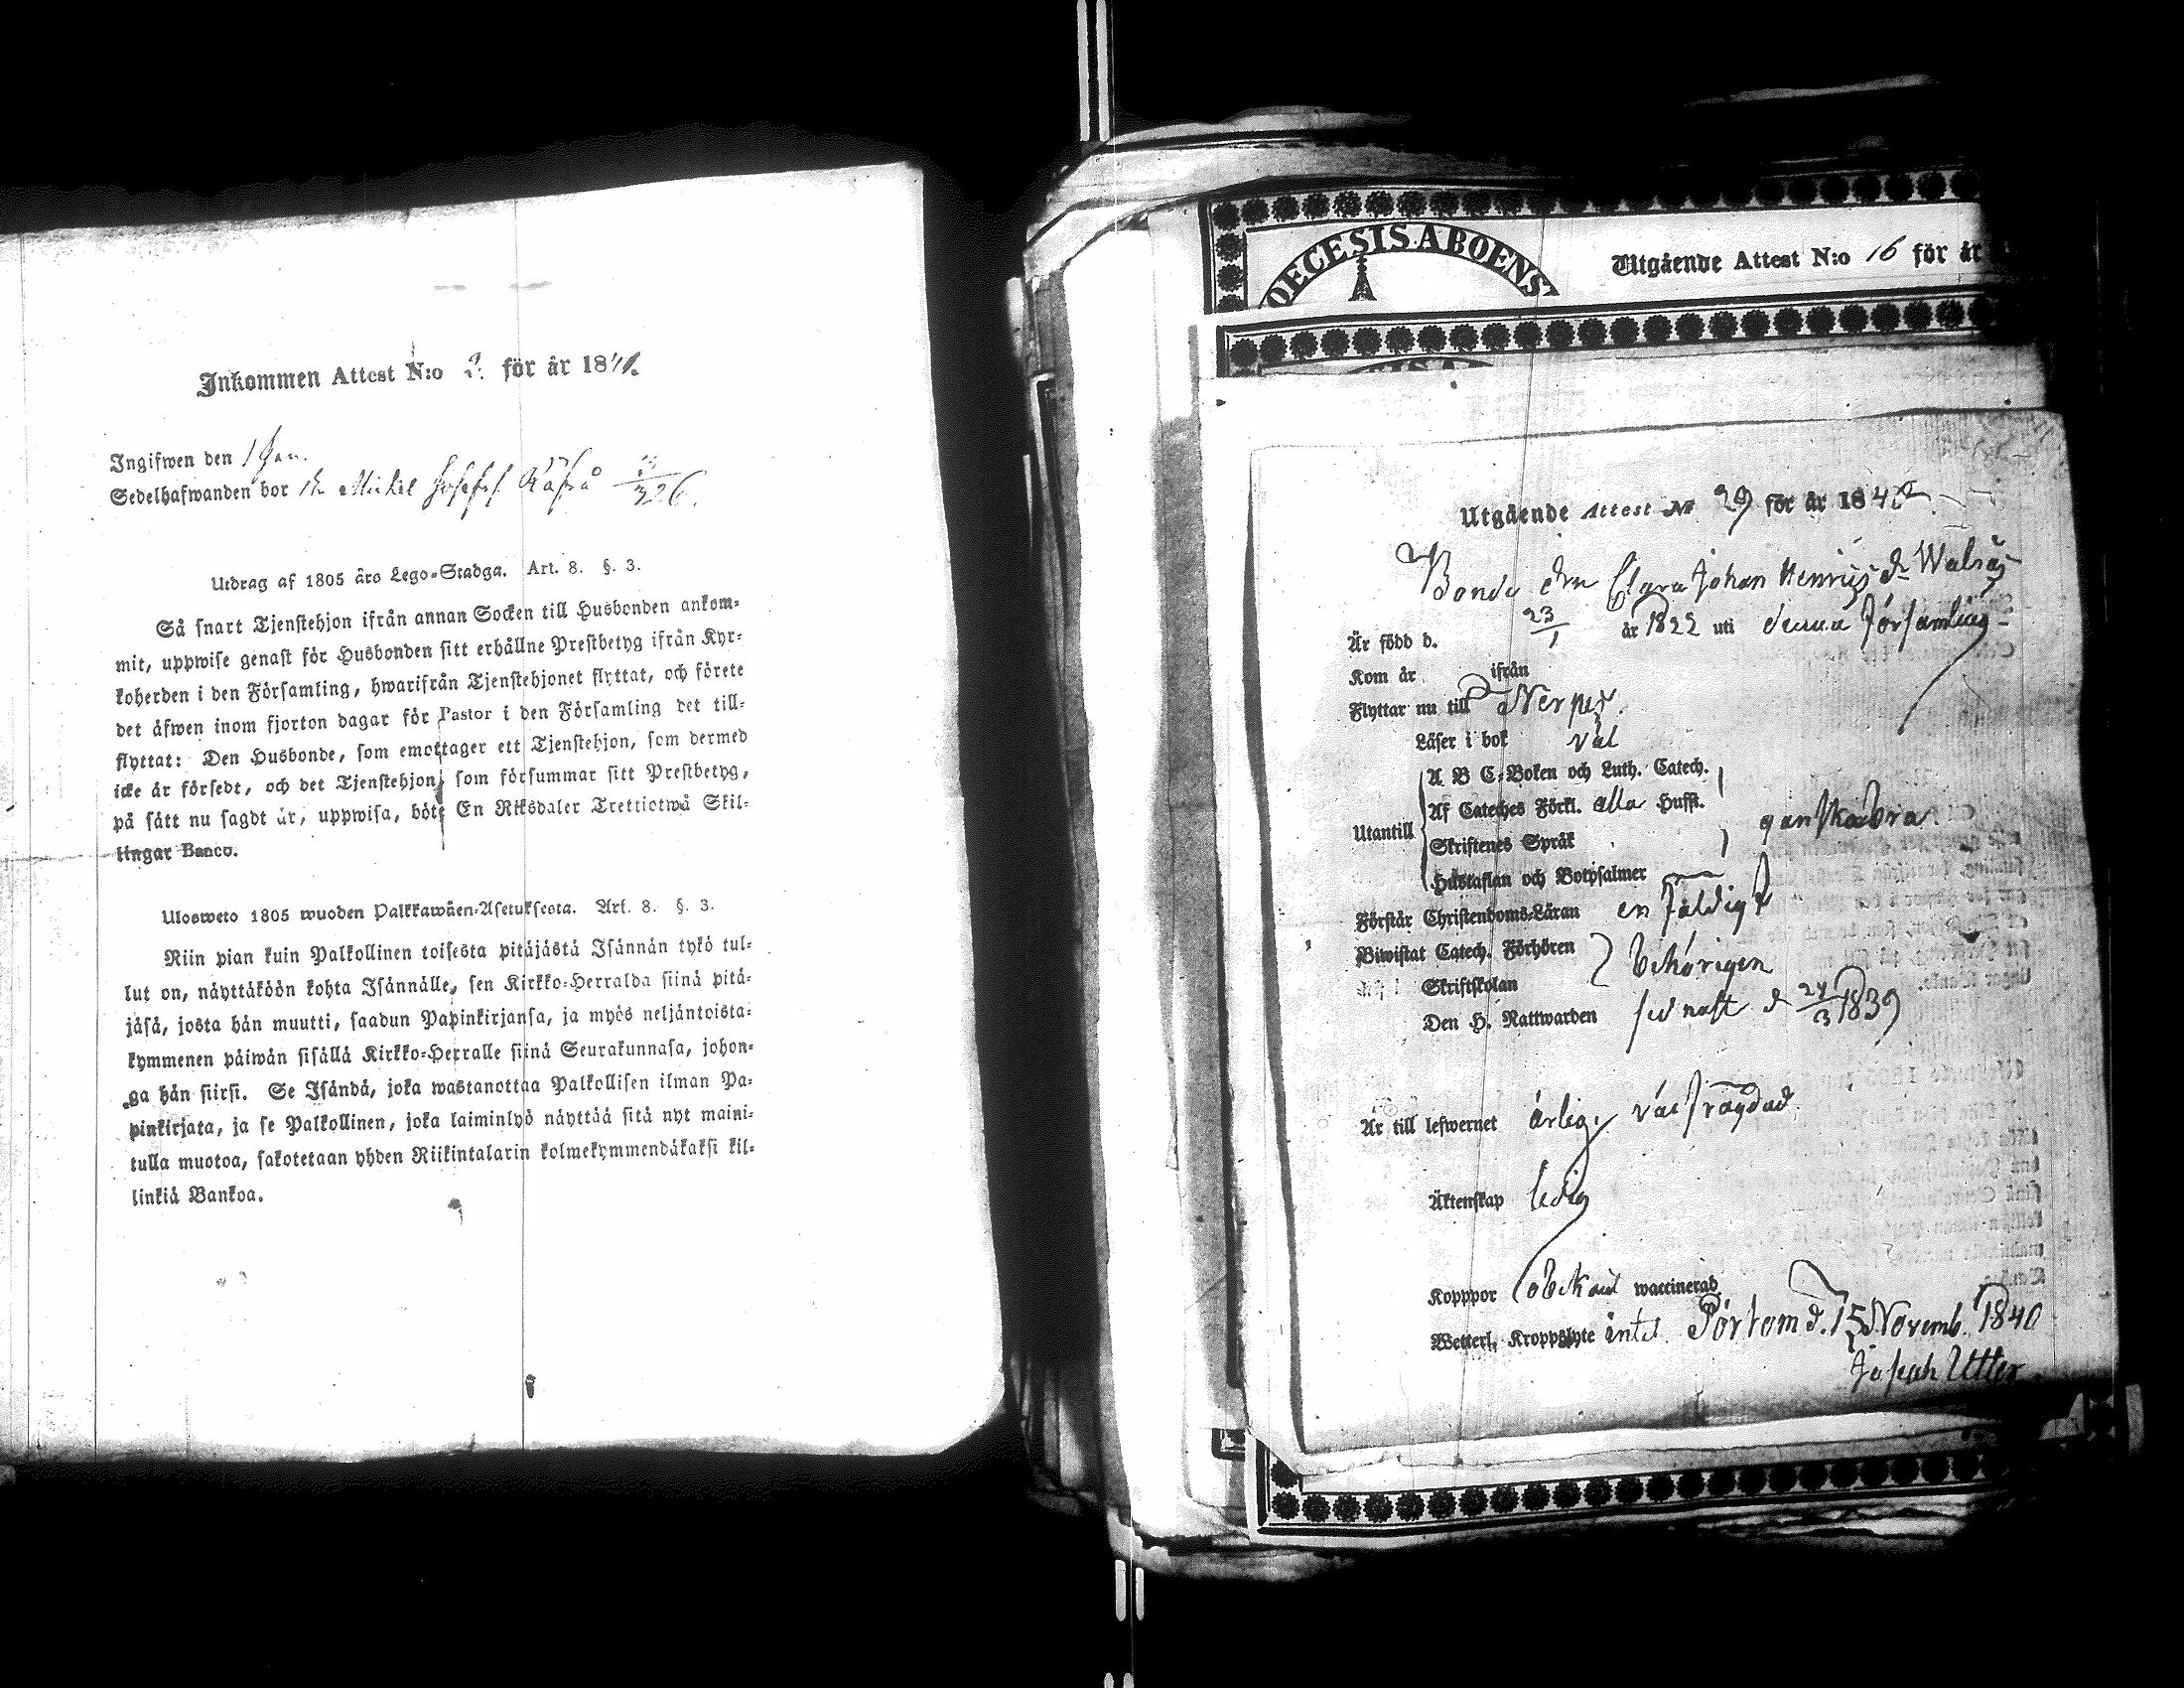 Inkommen Attest N:o 2. för år 1841.
Ingifwen den 1 Jan.
Sedelhafwanden bor Michel Josefs
Utdrag af 1805 års Lego-Stadga. Art. 8. §. 3.
Så snart Tjenstehjon ifrån annan Socken till Husbonden ankom-
mit, uppwise genast för Husbonden sitt erhållne Prestbetyg ifrån Kyr-
koherden i den Församling, hwarifrån Tjenstehjonet flyttat, och förete
det äfwen inom fjorton dagar för Pastor i den Församling det till-
flyttat: Den Husbonde, som emottager ett Tjenstehjon, som dermed
icke är försedt, och det Tjenstehjon, som försummar sitt Prestbetyg,
på sätt nu sagdt är, uppwisa, böte En Riksdaler Trettiotwå Skil-
lingar Banco.
Ulosweto 1805 wuoden Palkkawäen-Asetuksesta. Art. 8. §. 3.
Niin pian kuin Palkollinen toisesta pitäjästä Isännän tykö tul-
lut on, näyttäköön kohta Isännälle, sen Kirkko-Herralda siinä pitä-
jäsä, josta hän muutti, saadun Papinkirjansa, ja myös neljäntoista-
kymmenen päiwän sisällä Kirkko-Herralle siinä Seurakunnasa, johon-
ga hän siirsi. Se Isändä, joka wastanottaa Palkollisen ilman Pa-
pinkirjata, ja se Palkollinen, joka laiminlyö näyttää sitä nyt maini-
tulla muotoa, sakotetaan yhden Riikintalarin kolmekymmendäkaksi kil-
linkiä Bankoa.
OECESIS.ABOENS
Utgående Attest N:o 16 för år
Utgående Attest № 29 för år 1840
Bonde drn Clara Johan Henrics dr Walsåg
Är född d. 23/1 år 1822 uti denna Församling
Kom år ifrån
Flyttar nu till Nerpes.
Läser i bok väl
Utantill
A B C-Boken och Luth. Catech.
Af Cateches Förkl. alla Hufst.
Skriftenes Språk
Hustaflan och Botpsalmer
ganska bra
Förstår Christendoms-Läran enfäldigt
Biwistat Catech. Förhören
Skriftskolan
behörigen
Den H. Nattwarden sednast d 24/3 1839
Är till lefwernet ärlig, välfrägdad
Äktenskap ledig
Kopppor obekant waccinerad
Wetterl. Kroppslyte intet. Pörtom d. 15 Novemb. 1840
Joseph Utter